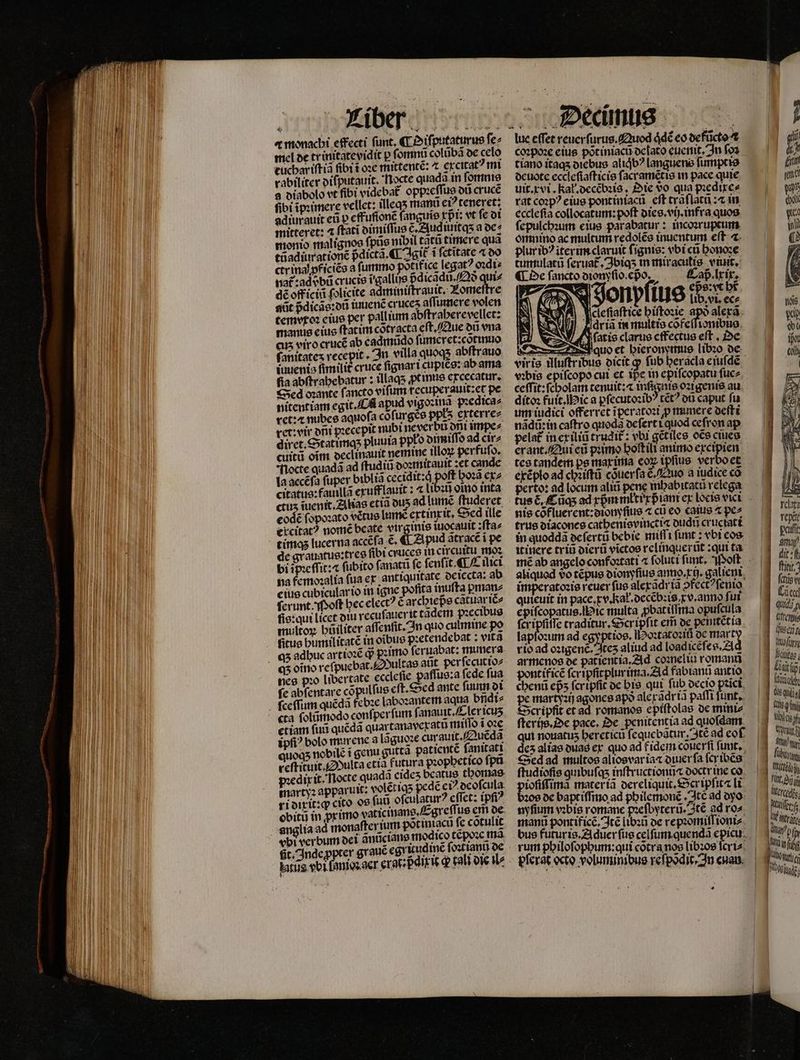 Liber
⁊ monachi effecti sunt. ¶ Disputaturus se⸗
mel de trinitate vidit ꝑ somnū colūbā de celo
eucharistiā sibi ī oꝛe mittentē: ⁊ excitatꝰ mi
rabiliter disputauit. Nocte quadā in somnis
a diabolo vt sibi videbat᷑ oppꝛessus dū crucē
sibi īpꝛimere vellet: illeqꝫ manū eiꝰ teneret:
adiurauit eū ꝑ effusionē sanguis xp̄i: vt se di
mitteret: ⁊ stati dimissus ē. Audiuitqꝫ a de⸗
monio malignos sp̄us nihil tātū timere quā
tū adiurationē p̄dictā. ¶ Igit᷑ ī sctītate ⁊ do
ctrina ꝓficiēs a summo pōtifice legatꝰ oꝛdi⸗
nat᷑: ad ꝟbū crucis ī gallijs p̄dicādū. Qd̄ qui⸗
dē officiū solicite administrauit. Lomestre
aūt p̄dicās: dū iuuenē cruceꝫ assumere volen
tem vxoꝛ eius per pallium abstrahere vellet:
manus eius statim cōtracta est. Que dū vna
cuꝫ viro crucē ab eadmūdo sumeret: cōtinuo
sanitateꝫ recepit. In villa quoqꝫ abstrauo
iuuenis similit᷑ cruce signari cupiēs: ab ama
sia abstrahebatur: illaqꝫ ꝓtinus excecatur.
Sed oꝛante sancto visum recuperauit: et pe
nitentiam egit. Cū apud vigoꝛinā pꝛedica⸗
ret: ⁊ nubes aquosa cōsurgēs pp̄lꝫ exterre⸗
ret: vir dn̄i pꝛecepit nubi ne verbū dn̄i impe⸗
diret. Statimqꝫ pluuia pp̄lo dimisso ad cir⸗
cuitū oīm declinauit nemine illoꝝ perfuso.
Nocte quadā ad studiū doꝛmitauit: et cande
la accēsa super bibliā cecidit: ꝗ̄ post hoꝛā ex⸗
citatus: fauillā exufflauit: ⁊ libꝛū oīno inta
ctuꝫ īuenit. Alias etiā duꝫ ad lumē studeret
eodē sopoꝛato vētus lumē extinxit. Sed ille
excitatꝰ nomē beate virginis inuocauit: sta⸗
timqꝫ lucerna accēsa ē. ¶ Apud ātracē ī pe
de grauatus: tres sibi cruces in circuitu moꝛ
bi īpꝛessit: ⁊ subito sanatū se sensit. ¶ Cilici
na femoꝛalia sua ex antiquitate deiecta: ab
eius cubiculario in igne posita inusta ꝑman⸗
serunt. Post hec electꝰ ē archiep̄s cātuariē⸗
sis: qui licet diu recusauerit tādem pꝛecibus
multoꝝ hūiliter assensit. In quo culmine po
situs humilitatē in oībus pꝛetendebat: vitā
qꝫ adhuc artioꝛē ꝗ̄ pꝛimo seruabat: munera
qꝫ oīno respuebat. Multas aūt persecutio⸗
nes pꝛo libertate ecclesie passus: a sede sua
se absentare cōpulsus est. Sed ante suum di
scessum quēdā febꝛe laboꝛantem aqua bn̄di⸗
cta solūmodo conspersum sanauit. Clericuꝫ
etiam suū quēdā quartanaꝫ vexatū misso ī oꝛe
ipsiꝰ bolo murene a lāguoꝛe curauit. Quēdā
quoqꝫ nobilē ī genu guttā patientē sanitati
restituit. Multa etiā futura pꝛophetico sp̄ū
pꝛedixit. Nocte quadā eideꝫ beatus thomas
martyꝛ apparuit: volētiqꝫ pedē eiꝰ deoscula
ri dixit: ꝙ cito os suū oscularturꝰ esset: ipsiꝰ
obitū in pꝛimo vaticinans. Egressus em̄ de
anglia ad monasterium pōtiniacū se cōtulit
vbi verbum dei ānūcians modico tēpoꝛe mā
sit. Inde ꝓpter grauē egritudinē soꝛtianū de
latus vbi sanioꝛ aer erat: p̄dixit ꝙ tali die il⸗
Decimus
luc esset reuersurus. Quod ꝗdē eo defūcto ⁊
coꝛpoꝛe eius pōtiniacū delato euenit. In soꝛ
tiano itaqꝫ diebus aliqbꝰ languens sumptis
deuote ecclesiasticis sacramētis in pace quie
uit. xvi. kal. decēbꝛis. Die v̄o qua pꝛedixe⸗
rat coꝛpꝰ eius pontiniacū est trāslatū: ⁊ in
ecclesia collocatum: post dies. vij. infra quos
sepulchꝛum eius parabatur: incoꝛruptum
omnino ac multum redolēs inuentum est ⁊
pluribꝰ iterum claruit signis: vbi cū honoꝛe
tumulatū seruat᷑. Ibiqꝫ in miraculis viuit.
¶ De sancto dionysio. ep̄o. Cap̄. lxix.
Dionysius ep̄s: vt ht᷑
lib. vi. ec⸗
clesiastice histoꝛie apd̄ alexā
dria in multis cōfessionibus
satis clarus effectus est. De
quo et hieronymus libꝛo de
viris illustribus dicit ꝙ sub heracla eiusdē
vꝛbis episcopo cui et ip̄e in episcopatu suc⸗
cessit: scholam tenuit: ⁊ insignis oꝛigenis au
ditoꝛ fuit. Hic a ꝑsecutoꝛibꝰ tētꝰ dū caput su
um iudici offerret īperatoꝛi ꝓ munere desti
nādū: in castro quodā desert i quod cefron ap
pelat᷑ in exiliū trudit᷑: vbi gētiles oēs ciues
erant. Qui eū pꝛimo hostili animo excipien
tes tandem ꝑs maxima eoꝝ ipsius verbo et
exēplo ad chꝛistū cōuersa ē. Quo a iudice cō
perto: ad locum aliū pene inhabitatū relega
tus ē. Cūqꝫ ad xp̄m mlti xp̄iani ex locis vici
nis cōfluerent: dionysius ⁊ cū eo caius ⁊ pe⸗
trus diacones cathenis vincti ⁊ dudū cruciati
in quoddā desertū bebie missi sunt: vbi eos
itinere triū dierū victos relinquerūt: qui ta
mē ab angelo confoꝛtati ⁊ soluti sunt. Post
aliquod v̄o tēpus dionysius anno. xij. galieni
imperatoꝛis reuersus alexādriā ꝯfectꝰ senio
quieuit in pace. xv. kal. decēbꝛis. xv. anno sui
episcopatus. Hic multa ꝓbatissima opuscula
scripsisse traditur. Scripsit em̄ de penitētia
lapsoꝛum ad egyptios. Hoꝛtatoꝛiū de marty
rio ad oꝛigenē. Iteꝫ aliud ad loadicēses. Ad
armenos de patientia. Ad coꝛneliū romanū
pontificē scripsit plurima. Ad fabianū antio
chenū ep̄ꝫ scripsit de his qui sub decio pꝛīci
pe martyꝛij agones apd̄ alexādriā passi sunt.
Scripsit et ad romanos epistolas de mini⸗
sterijs. De pace. De penitentia ad quosdam
qui nouatuꝫ hereticū sequebātur. Itē ad eos
deꝫ alias duas ex quo ad fidem cōuersi sunt.
Sed ad multos alios varia ⁊ diuersa scribēs
studiosis quibusqꝫ instructionū ⁊ doctrine co
piosissimā materiā dereliquit. Scripsit ⁊ li
bꝛos de baptismo ad philemonē. Itē ad dyo
nysium vꝛbis romane pꝛesbyterū. Itē ad ro⸗
manū pontificē. Itē libꝛū de repꝛomissioni⸗
bus futuris. Aduersus celsum quendā epicu
rum philosophum: qui cōtra nos libꝛos scri⸗
pserat octo voluminibus respōdit. In euan